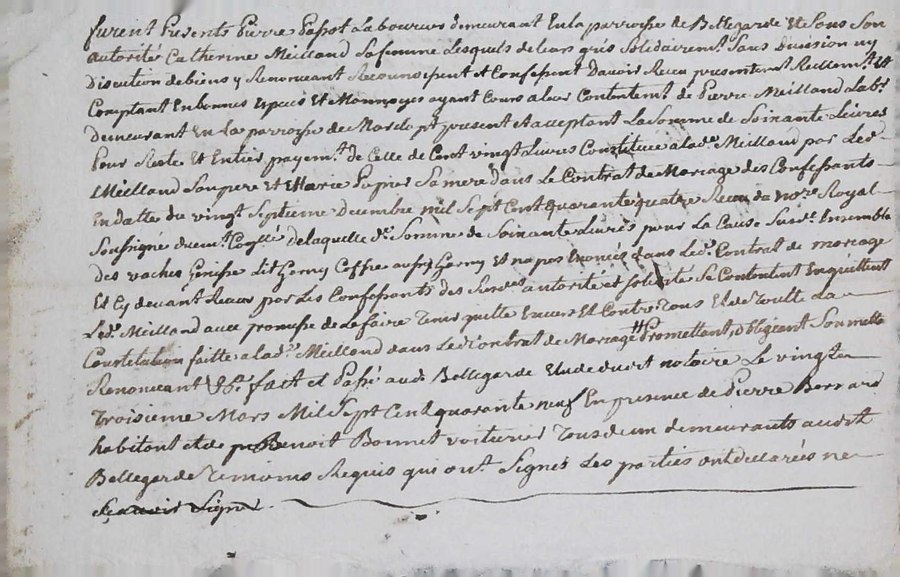 furent Presents Pierre Papot Laboureur demeurant En la parroisse de Bellegarde Et Sous Son
autorité Catherine Meilland Sa femme Lesquels de leurs grés Solidairemt. Sans Division ny
Discution de biens y Renonceant Reconnoissent et Confessent Davoir Receu presentemt. Reellemt. Et
Comptant En bonnes Especes Et Monnoyes ayant Cours a leur Contentemt. de Pierre Meilland Labr.
demeurant En la parroisse de Marclopt present et acceptant La Somme de Soixante Livres
Pour Reste Et Entier payemt. de Celle de Cent vingt Livres Constituée a lade. Meilland par Led.
Meilland Son pere et Marie Pagnes Sa mere dans Le Contrat de Mariage des Confessants
En datte du vingt Septieme Decembre mil Sept Cent quarante quatre Receu du nore. Royal
Soussigné de laquelle de. Somme de Soixante Livres pour La Cause Susde. Ensemble
des vaches Genisse Lit Garny Coffre aussy Garny Et na pas Enoncés dans Led. Contrat de mariage
Et Cy devant Receus par Les Confessants des Susdes autorité et Solidité Se Contentent En quittent
Led. Meilland avec promesse de Le faire Tenir quitte Envers Et Contre Tous Et de La
Constitution faitte a lade. Meilland dans Led. Contrat de Mariage Promettant, obligeant Soumette
Renonceant &c. fait et Passé aud. Bellegarde Etude dud. notaire Le vingt
Troisieme Mars Mil Sept Cent quarante neuf En presence de Pierre Bernard
habitant et de Benoit Bonnet voiturier Tous deux demeurants audit
Bellegarde Temoins Requis qui ont Signés Les parties ont declarées ne
Sçavoir Signer.